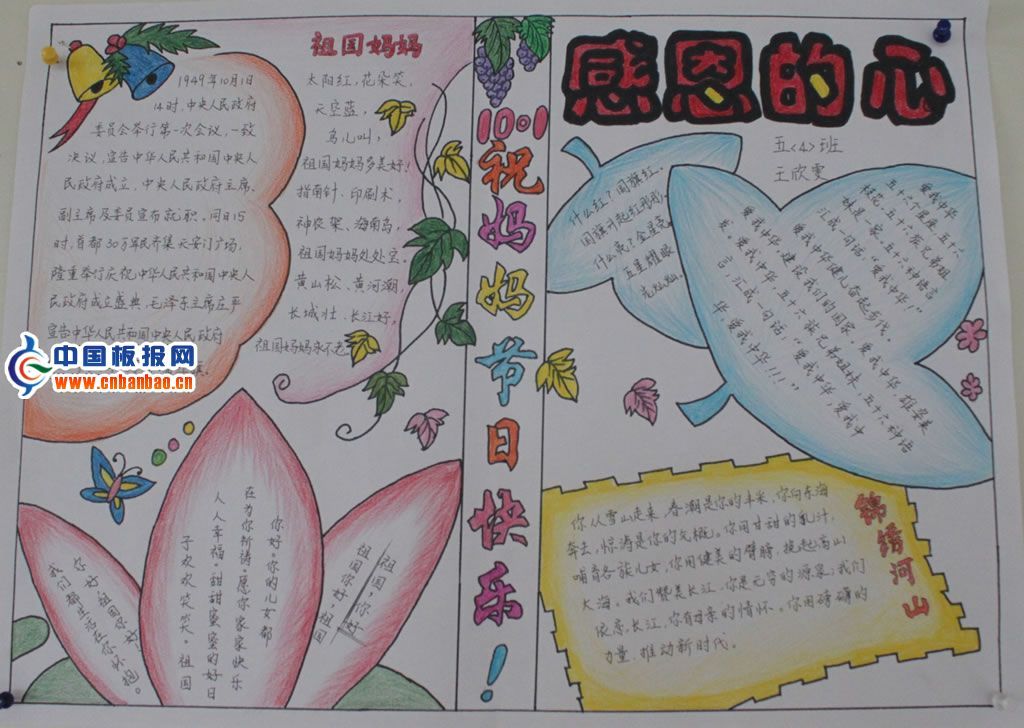 感恩的心
五<4>班
王欣雯
祖国妈妈
太阳红,花朵笑,
天空蓝,
鸟儿叫,
祖国妈妈多美好!
指南针、印刷术,
神农架、海南岛,
祖国妈妈处处宝。
黄山松、黄河潮,
长城壮、长江好,
祖国妈妈永不老
1949年10月1日
14时,中央人民政府
委员会举行第一次会议,一致
决议,宣告中华人民共和国中央人
民政府成立,中央人民政府主席、
副主席及委员宣布就职。同日15
时,首都30万军民齐集天安门广场,
隆重举行庆祝中华人民共和国中央人
民政府成立盛典,毛泽东主席庄严
宣告中华人民共和国中央人民政府
中国板报网
www.cnbanbao.cn
10·1
祝妈妈节日快乐!
什么红?国旗红。
国旗升起红彤彤,
什么亮?金星亮
五星耀眼
亮灿灿。
爱我中华
五十六个星座五十六
枝花,五十六族兄弟姐
妹是一家,五十六种语言
汇成一句话"爱我中华"
爱我中华健儿奋起步伐。
爱我中华,建设我们的国家。爱我中华,雄姿英
发。爱我中华,五十六族兄弟姐妹,五十六种语
言,汇成一句话:"爱我中华,爱我中
华,爱我中华!!!"
锦绣河山
你从雪山走来,春潮是你的丰采,你向东海
奔去,惊涛是你的气概。你用甘甜的乳汁,
哺育各族儿女,你用健美的臂膀,挽起高山
大海。我们赞美长江,你是无穷的源泉;我们
依恋长江,你有母亲的情怀。你用磅礴的
力量,推动新时代。
祖国,你好
祖国你好,祖国
你好。你的儿女都
在为你祈祷。愿你家家快乐
人人幸福。甜甜蜜蜜的好日
子欢欢笑笑。祖国
你好祖国你好!
我们都生活在你怀抱。